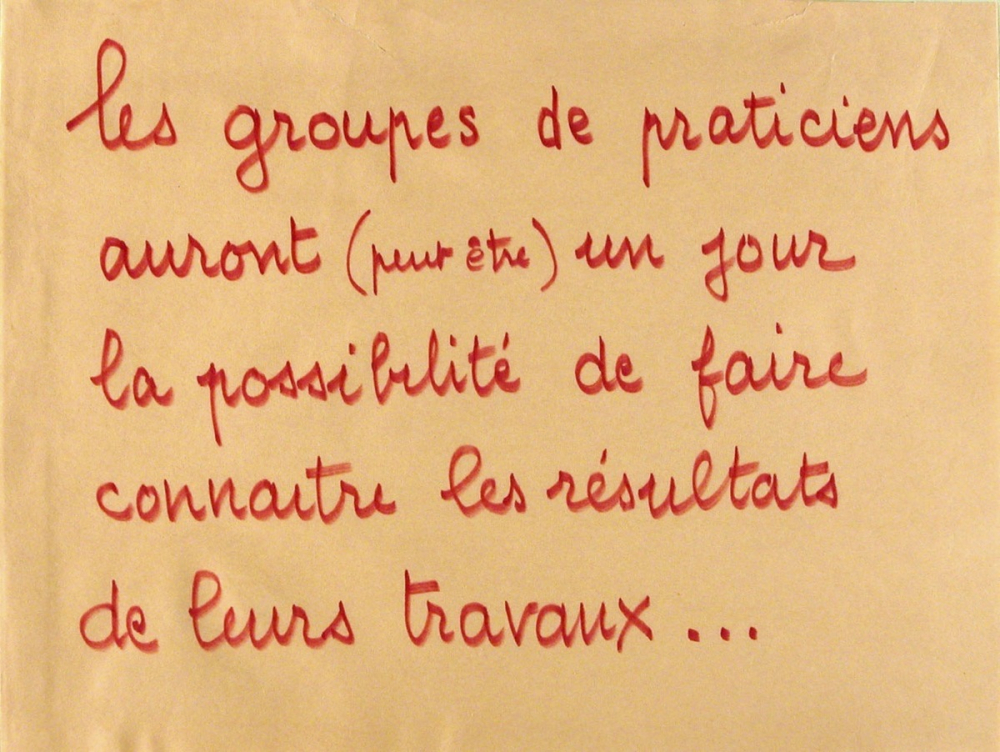 les groupes de praticiens
auront (peut être) un jour
la possibilité de faire
connaitre les résultats
de leurs travaux...